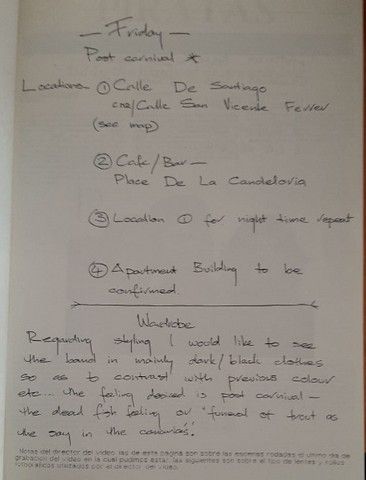 — Friday —
Post carnival *
Locations ① Calle De Santiago
cnr/Calle San Vicente Ferrer
(see map)
② Cafe/Bar —
Place De La Candeloria
③ Location ① for night time repeat
④ Apartment Building to be
confirmed.
Wardrobe
Regarding styling I would like to see
the band in mainly dark/black clothes
so as to contrast with previous colour
etc... the feeling desired is post carnival —
the dead fish feeling or "funeral of trout as
the say in the canaries".
Notas del director del video, las de esta pagina son sobre las escenas rodadas el ultimo dia de
grabacion del video en la cual pudimos estar, las siguientes son sobre el tipo de lentes y rollos
fotograficos utilizados por el director del video.